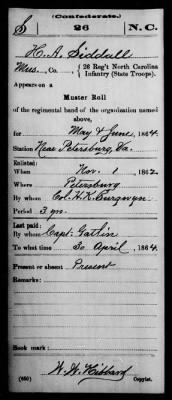 (Confederate.)
S 26 N.C.
H. A. Siddall
Mus., Co. , 26 Reg't North Carolina
Infantry (State Troops).
Appears on a
Muster Roll
of the regimental band of the organization named
above,
for May & June, 1864.
Station Near Petersburg, Va.
Enlisted:
When Nov. 1, 1862
Where Petersburg
By whom Col. H. K. Burgwyn
Period 3 yrs.
Last paid:
By whom Capt. Gatlin
To what time 30 April, 1864.
Present or absent Present
Remarks:
Book mark:
W. W. Hibbard
Copyist.